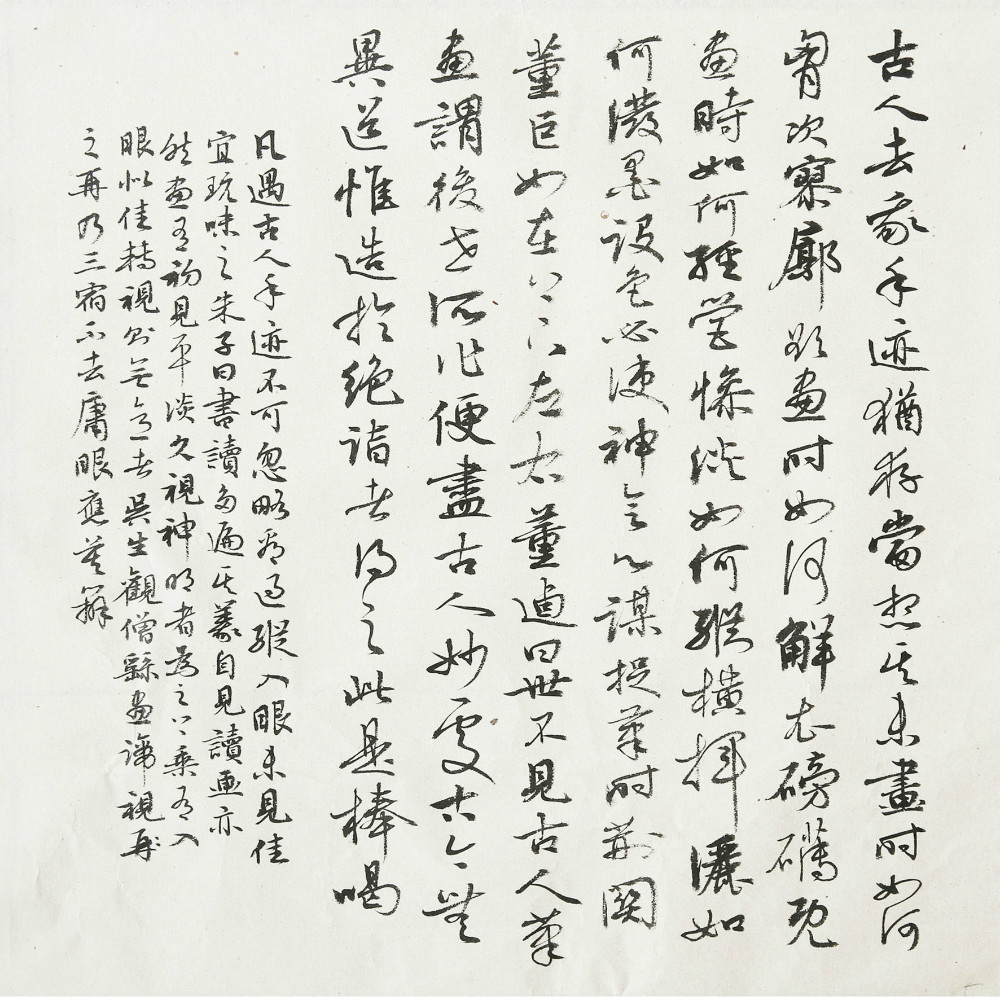 古人去我手迹猶存當想其未畫时如何
胷次寥廓欲畫时如何解衣磅礴既
畫時如何經營慘淡如何縱橫揮灑如
何潑墨設色必使神與心謀捉筆时荆關
董巨如在上下左右董逌曰世不見古人筆
畫謂後世所作便盡古人妙處古今無
異道惟造於絕詣者得之此是棒喝
凡遇古人手迹不可忽略看過縱入眼未見佳
宜玩味之朱子曰書讀多遍其義自見讀畫亦
然畫有初見平淡久視神明者為之上乘有入
眼似佳轉視則無意者吳生觀僧繇畫諦視再
之再乃三宿不去庸眼應莫辨